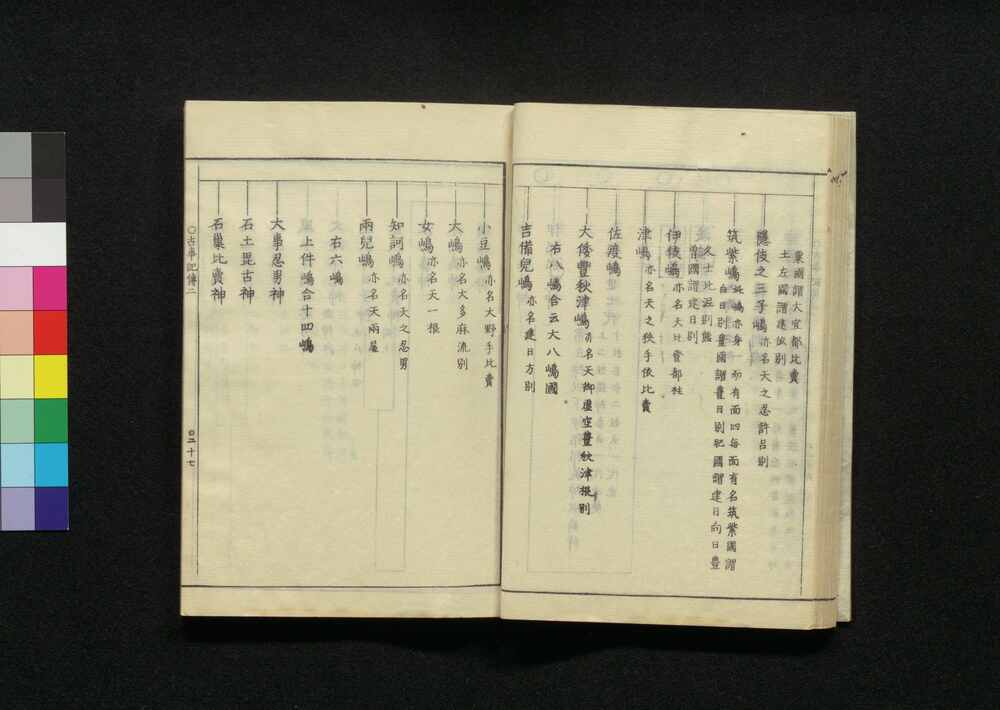 粟國謂大宜都比賣
土左國謂建依別
隱伎之三子嶋亦名天之忍許呂別
筑紫嶋此嶋亦身一而有面四每面有名筑紫國謂
白日別豐國謂豐日別肥國謂建日向日豐
久士比泥別熊
曾國謂建日別
伊伎嶋亦名天比登都柱
津嶋亦名天之狹手依比賣
佐渡嶋
大倭豐秋津嶋亦名天御虛空豐秋津根別
右八嶋合云大八嶋國
吉備兒嶋亦名建日方別
小豆嶋亦名大野手比賣
大嶋亦名大多麻流別
女嶋亦名天一根
知訶嶋亦名天之忍男
兩兒嶋亦名天兩屋
右六嶋
上件嶋合十四嶋
大事忍男神
石土毘古神
石巢比賣神
〇古事記傳二
二十七